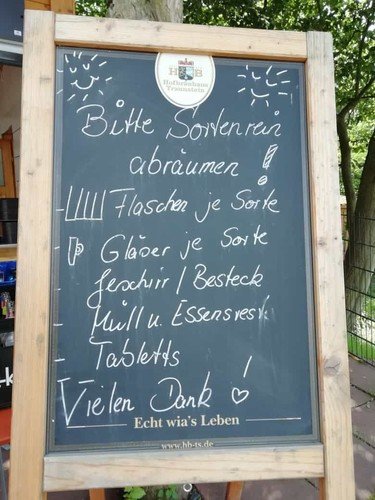 HB
Hofbräuhaus
Traunstein
Bitte Sortenrein
abräumen !
- Flaschen je Sorte
- Gläser je Sorte
- Geschirr / Besteck
- Müll u. Essensrest.
- Tabletts
Vielen Dank !
Echt wia's Leben
www.hb-ts.de